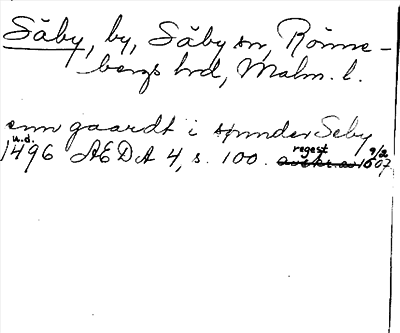 Säby, by, Säby sn, Rönne-
bergs hrd, Malm. l.
enn gaardt i synder Seby
u.d. regest 9/2
1496 AEDA 4, s. 100. avskr. av 1607